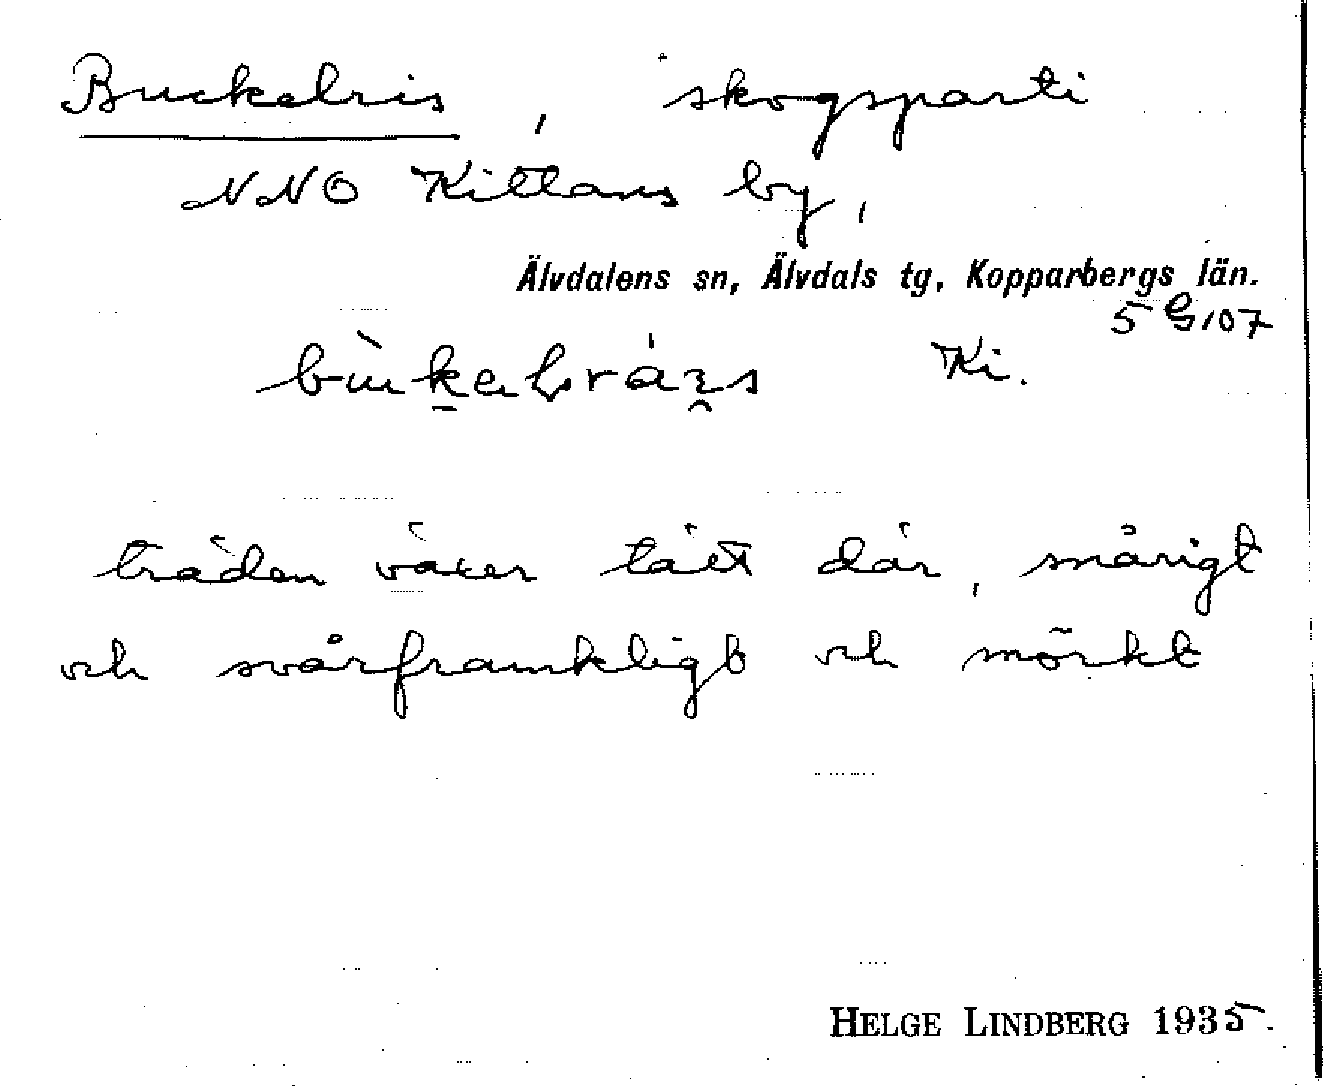 Buckelris, skogsparti
NNO Kittans by,
Älvdalens sn, Älvdals tg, Kopparbergs län.
5 G 107
Ki.
träden växer tätt där, snårigt
och svårframkligt och mörkt
HELGE LINDBERG 1935.